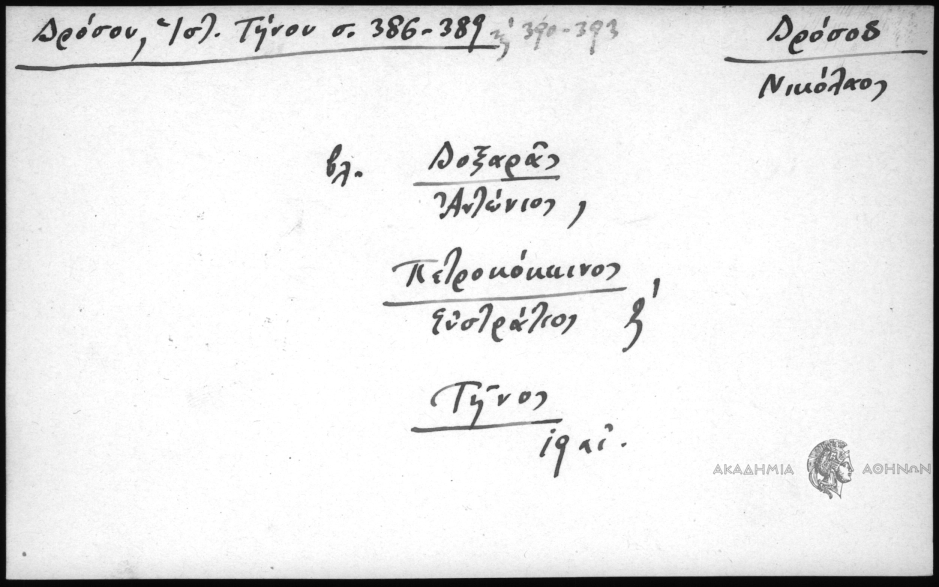 Δρόσου, Ἱστ. Τήνου σ. 386-389 κ 390-393
Δρόσου
Νικόλαος
βλ. Δοξαρᾶς
Ἀντώνιος,
Πετροκόκκινος
Εὐστράτιος
Τῆνος
ΑΚΑΔΗΜΙΑ ΑΘΗΝΩΝ